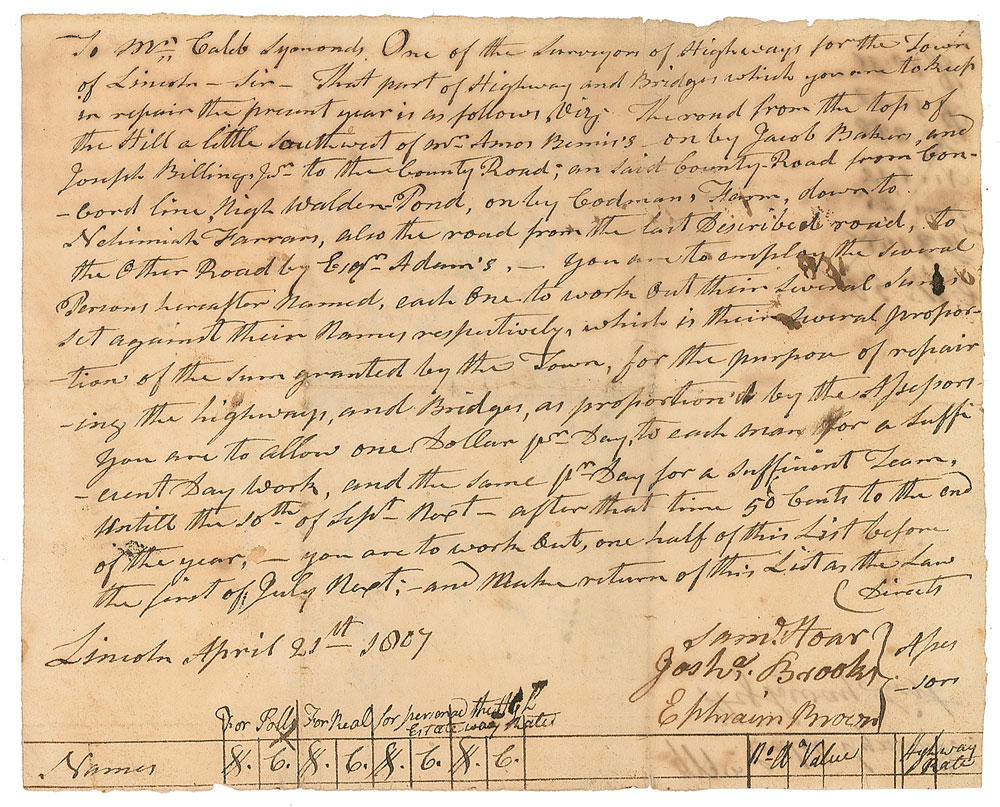 To Mr. Caleb Symonds. One of the Surveyors of Highways for the Town
of Lincoln – Sir – That part of Highway and Bridges which you are to keep
in repair the present year is as follows, Viz; The road from the top of
the Hill a little southwest of Mr. Amos Bemis's – on by Jacob Bakers, and
Joseph Billings, Jr. to the County-Road; on said County-Road from Con-
-cord line, Nigh Walden-Pond, on by Codmans, Farm, down to
Nehimiah Farrars, also the road from the last Described road, to
the Other Road by Esqr. Adam's, – You are to employ the Several
Persons hereafter Named, each One to work Out their Several Sums
set against their Names respectively, which is their Several propor-
-tion of the sum granted by the Town, for the purpose of repair
-ing the highways, and Bridges, as proportion'd by the Assessors-
You are to allow one Dollar pr. Day, to each man for a suffi
-cient Day Work, and the same pr. Day for a Sufficient Team,
Untill the 10th of Sept. Next – after that time 50 Cents to the end
of the year, – you are to work Out, one half of this List before
the first of July Next; – and Make return of this List as the Law
Directs
Lincoln April 21th 1807
Saml. Hoar
Josha. Brooks
Ephraim Brown
Asses
-sors
For Polls For Real for personal
Estate way Rates
Names $. C. $. C. $. C. $. C. No. Value Highway
Rate